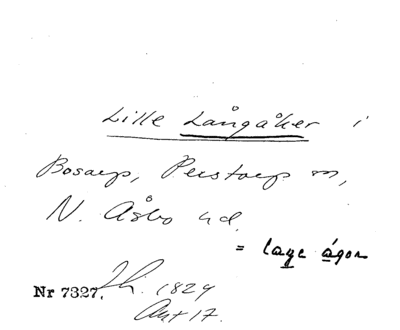 Lille Långåker i
Bosarp, Perstorp sn,
N. Åsbo hd.
= lage ágon
Nr 7327. Lh. 1824
Akt 17.